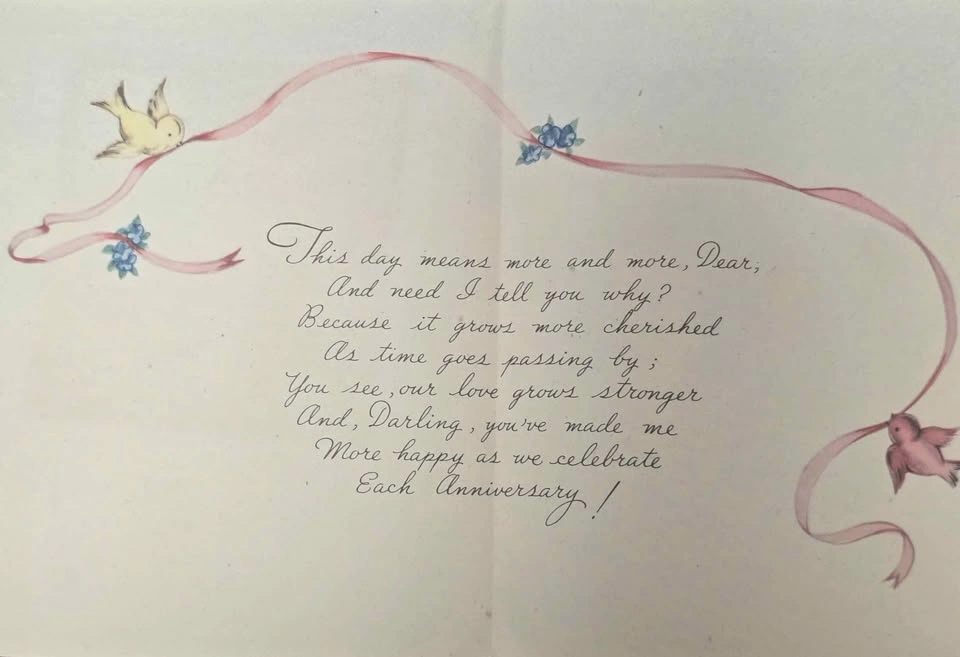 This day means more and more, Dear,
And need I tell you why?
Because it grows more cherished
As time goes passing by;
You see, our love grows stronger
And, Darling, you've made me
More happy as we celebrate
Each Anniversary!